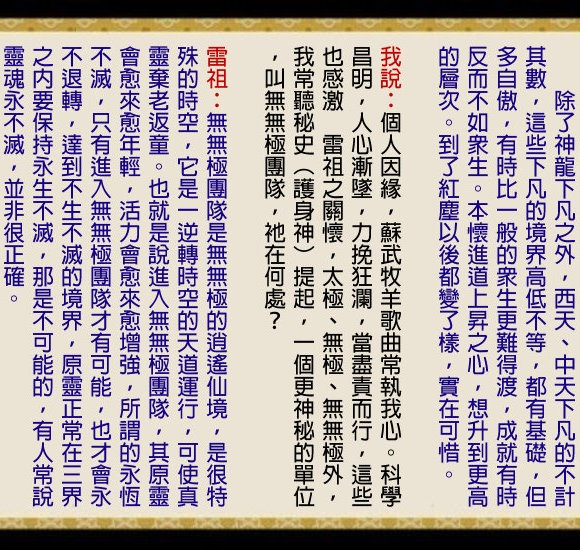 除了神龍下凡之外，西天、中天下凡的不計
其數，這些下凡的境界高低不等，都有基礎，但
多自傲，有時比一般的衆生更難得渡，成就有時
反而不如衆生。本懷進道上昇之心，想升到更高
的層次。到了紅塵以後都變了樣，實在可惜。
我說：個人因緣，蘇武牧羊歌曲常執我心。科學
昌明，人心漸墜，力挽狂瀾，當盡責而行，這些
也感激　雷祖之關懷，太極、無極、無無極外，
我常聽秘史（護身神）提起，一個更神秘的單位
，叫無無極團隊，祂在何處？
雷祖：無無極團隊是無無極的逍遙仙境，是很特
殊的時空，它是一逆轉時空的天道運行，可使真
靈棄老返童。也就是說進入無無極團隊，其原靈
會愈來愈年輕，活力會愈來愈增強，所謂的永恆
不滅，只有進入無無極團隊才有可能，也才會永
不退轉，達到不生不滅的境界，原靈正常在三界
之內要保持永生不滅，那是不可能的，有人常說
靈魂永不滅，並非很正確。